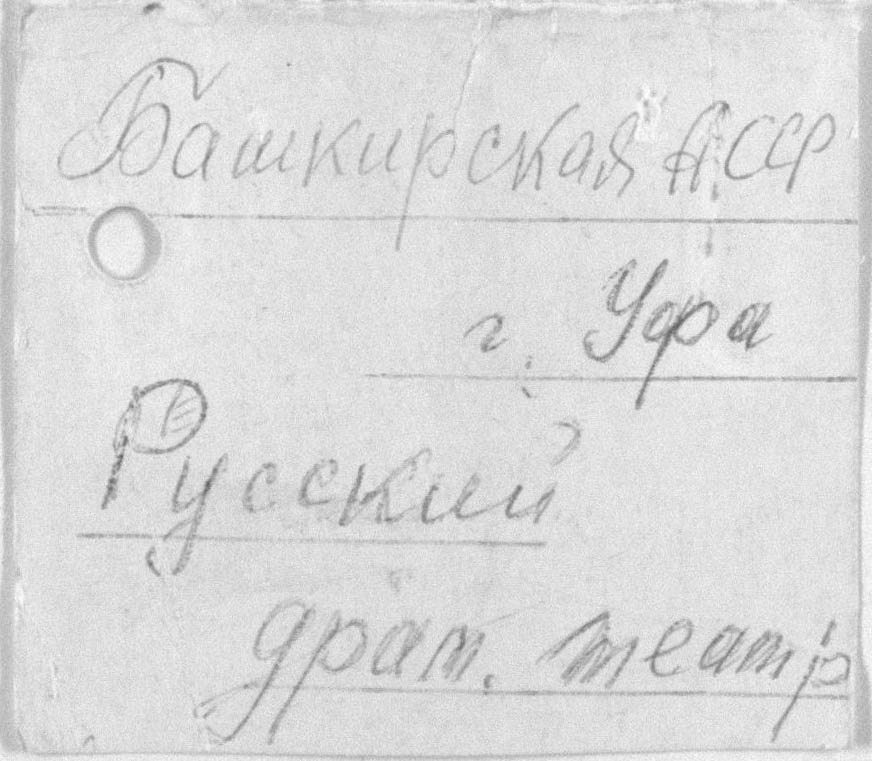 Башкирская АССР
г. Уфа
Русский
драм. театр